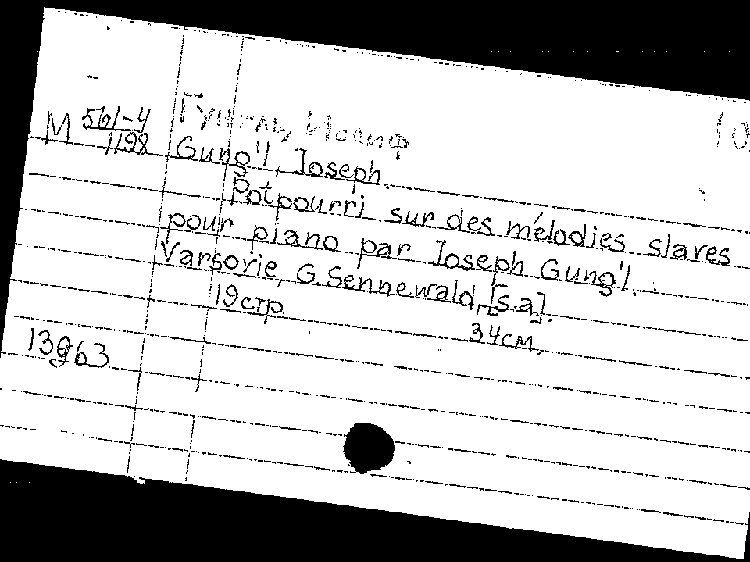 М 561-4
1198
Гунгль, Иосиф
10
Gung'l, Joseph.
Potpourri sur des mélodies slaves
pour piano par Joseph Gung'l.
Varsovie, G. Sennewald, [s.a].
19 стр. 34 см.
13963